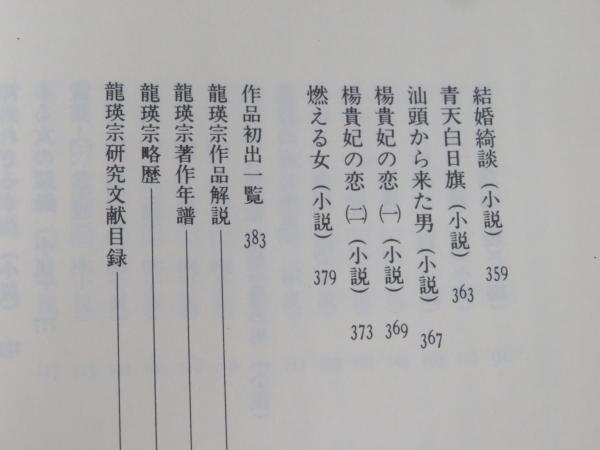 結婚綺談（小説）359
青天白日旗（小説）363
汕頭から来た男（小説）367
楊貴妃の恋 ㈠（小説）369
楊貴妃の恋 ㈡（小説）373
燃える女（小説）379
作品初出一覧 383
龍瑛宗作品解説
龍瑛宗著作年譜
龍瑛宗略歴
龍瑛宗研究文献目録